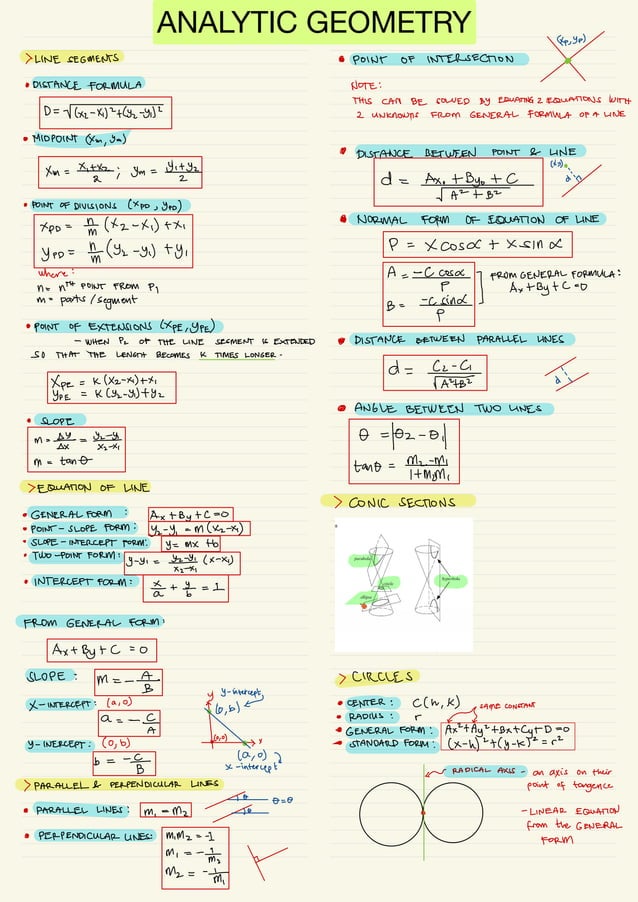 ANALYTIC GEOMETRY
> LINE SEGMENTS
• DISTANCE FORMULA
D = √(x₂-x₁)²+(y₂-y₁)²
• MIDPOINT (xₘ, yₘ)
xₘ = x₁+x₂/2 ; yₘ = y₁+y₂/2
• POINT OF DIVISIONS (xPD, yPD)
xPD = n/m (x₂-x₁)+x₁
yPD = n/m (y₂-y₁)+y₁
where:
n = nᵗʰ POINT FROM P₁
m = parts/segment
• POINT OF EXTENSIONS (xPE, yPE)
- WHEN P₂ OF THE LINE SEGMENT IS EXTENDED
SO THAT THE LENGTH BECOMES K TIMES LONGER.
xPE = K(x₂-x₁)+x₁
yPE = K(y₂-y₁)+y₂
• SLOPE
m = Δy/Δx = y₂-y₁/x₂-x₁
m = tan θ
> EQUATION OF LINE
• GENERAL FORM : Ax + By + C = 0
• POINT-SLOPE FORM: y₂-y₁ = m(x₂-x₁)
• SLOPE-INTERCEPT FORM: y = mx + b
• TWO-POINT FORM: y-y₁ = y₂-y₁/x₂-x₁ (x-x₁)
• INTERCEPT FORM: x/a + y/b = 1
FROM GENERAL FORM:
Ax + By + C = 0
SLOPE : m = - A/B
X-INTERCEPT: (a,0)
a = - C/A
Y-INTERCEPT: (0,b)
b = -C/B
y
y-intercept
(0,b)
(0,0)
x
(a,0)
x-intercept
> PARALLEL & PERPENDICULAR LINES
• PARALLEL LINES: m₁ = m₂
θ
θ
θ=θ
• PERPENDICULAR LINES: m₁m₂ = -1
m₁ = - 1/m₂
m₂ = - 1/m₁
• POINT OF INTERSECTION
(xp, yp)
NOTE:
THIS CAN BE SOLVED BY EQUATING 2 EQUATIONS WITH
2 UNKNOWNS FROM GENERAL FORMULA OF A LINE
• DISTANCE BETWEEN POINT & LINE
d = Ax₀ + By₀ + C/√A² + B²
d
• NORMAL FORM OF EQUATION OF LINE
P = x cos α + x sin α
A = -C cos α/P
B = -C sin α/P
FROM GENERAL FORMULA:
Ax + By + C = 0
• DISTANCE BETWEEN PARALLEL LINES
d = C₂ - C₁/√A²+B²
d
• ANGLE BETWEEN TWO LINES
θ = |θ₂ - θ₁|
tan θ = m₂ - m₁/1 + m₂m₁
> CONIC SECTIONS
parabola
circle
ellipse
hyperbola
> CIRCLES
• CENTER : C(h,k)
• RADIUS : r
SAME CONSTANT
• GENERAL FORM : Ax²+Ay²+Bx+Cy+D=0
• STANDARD FORM : (x-h)²+(y-k)² = r²
RADICAL AXIS - an axis on their
point of tangence
- LINEAR EQUATION
from the GENERAL
FORM